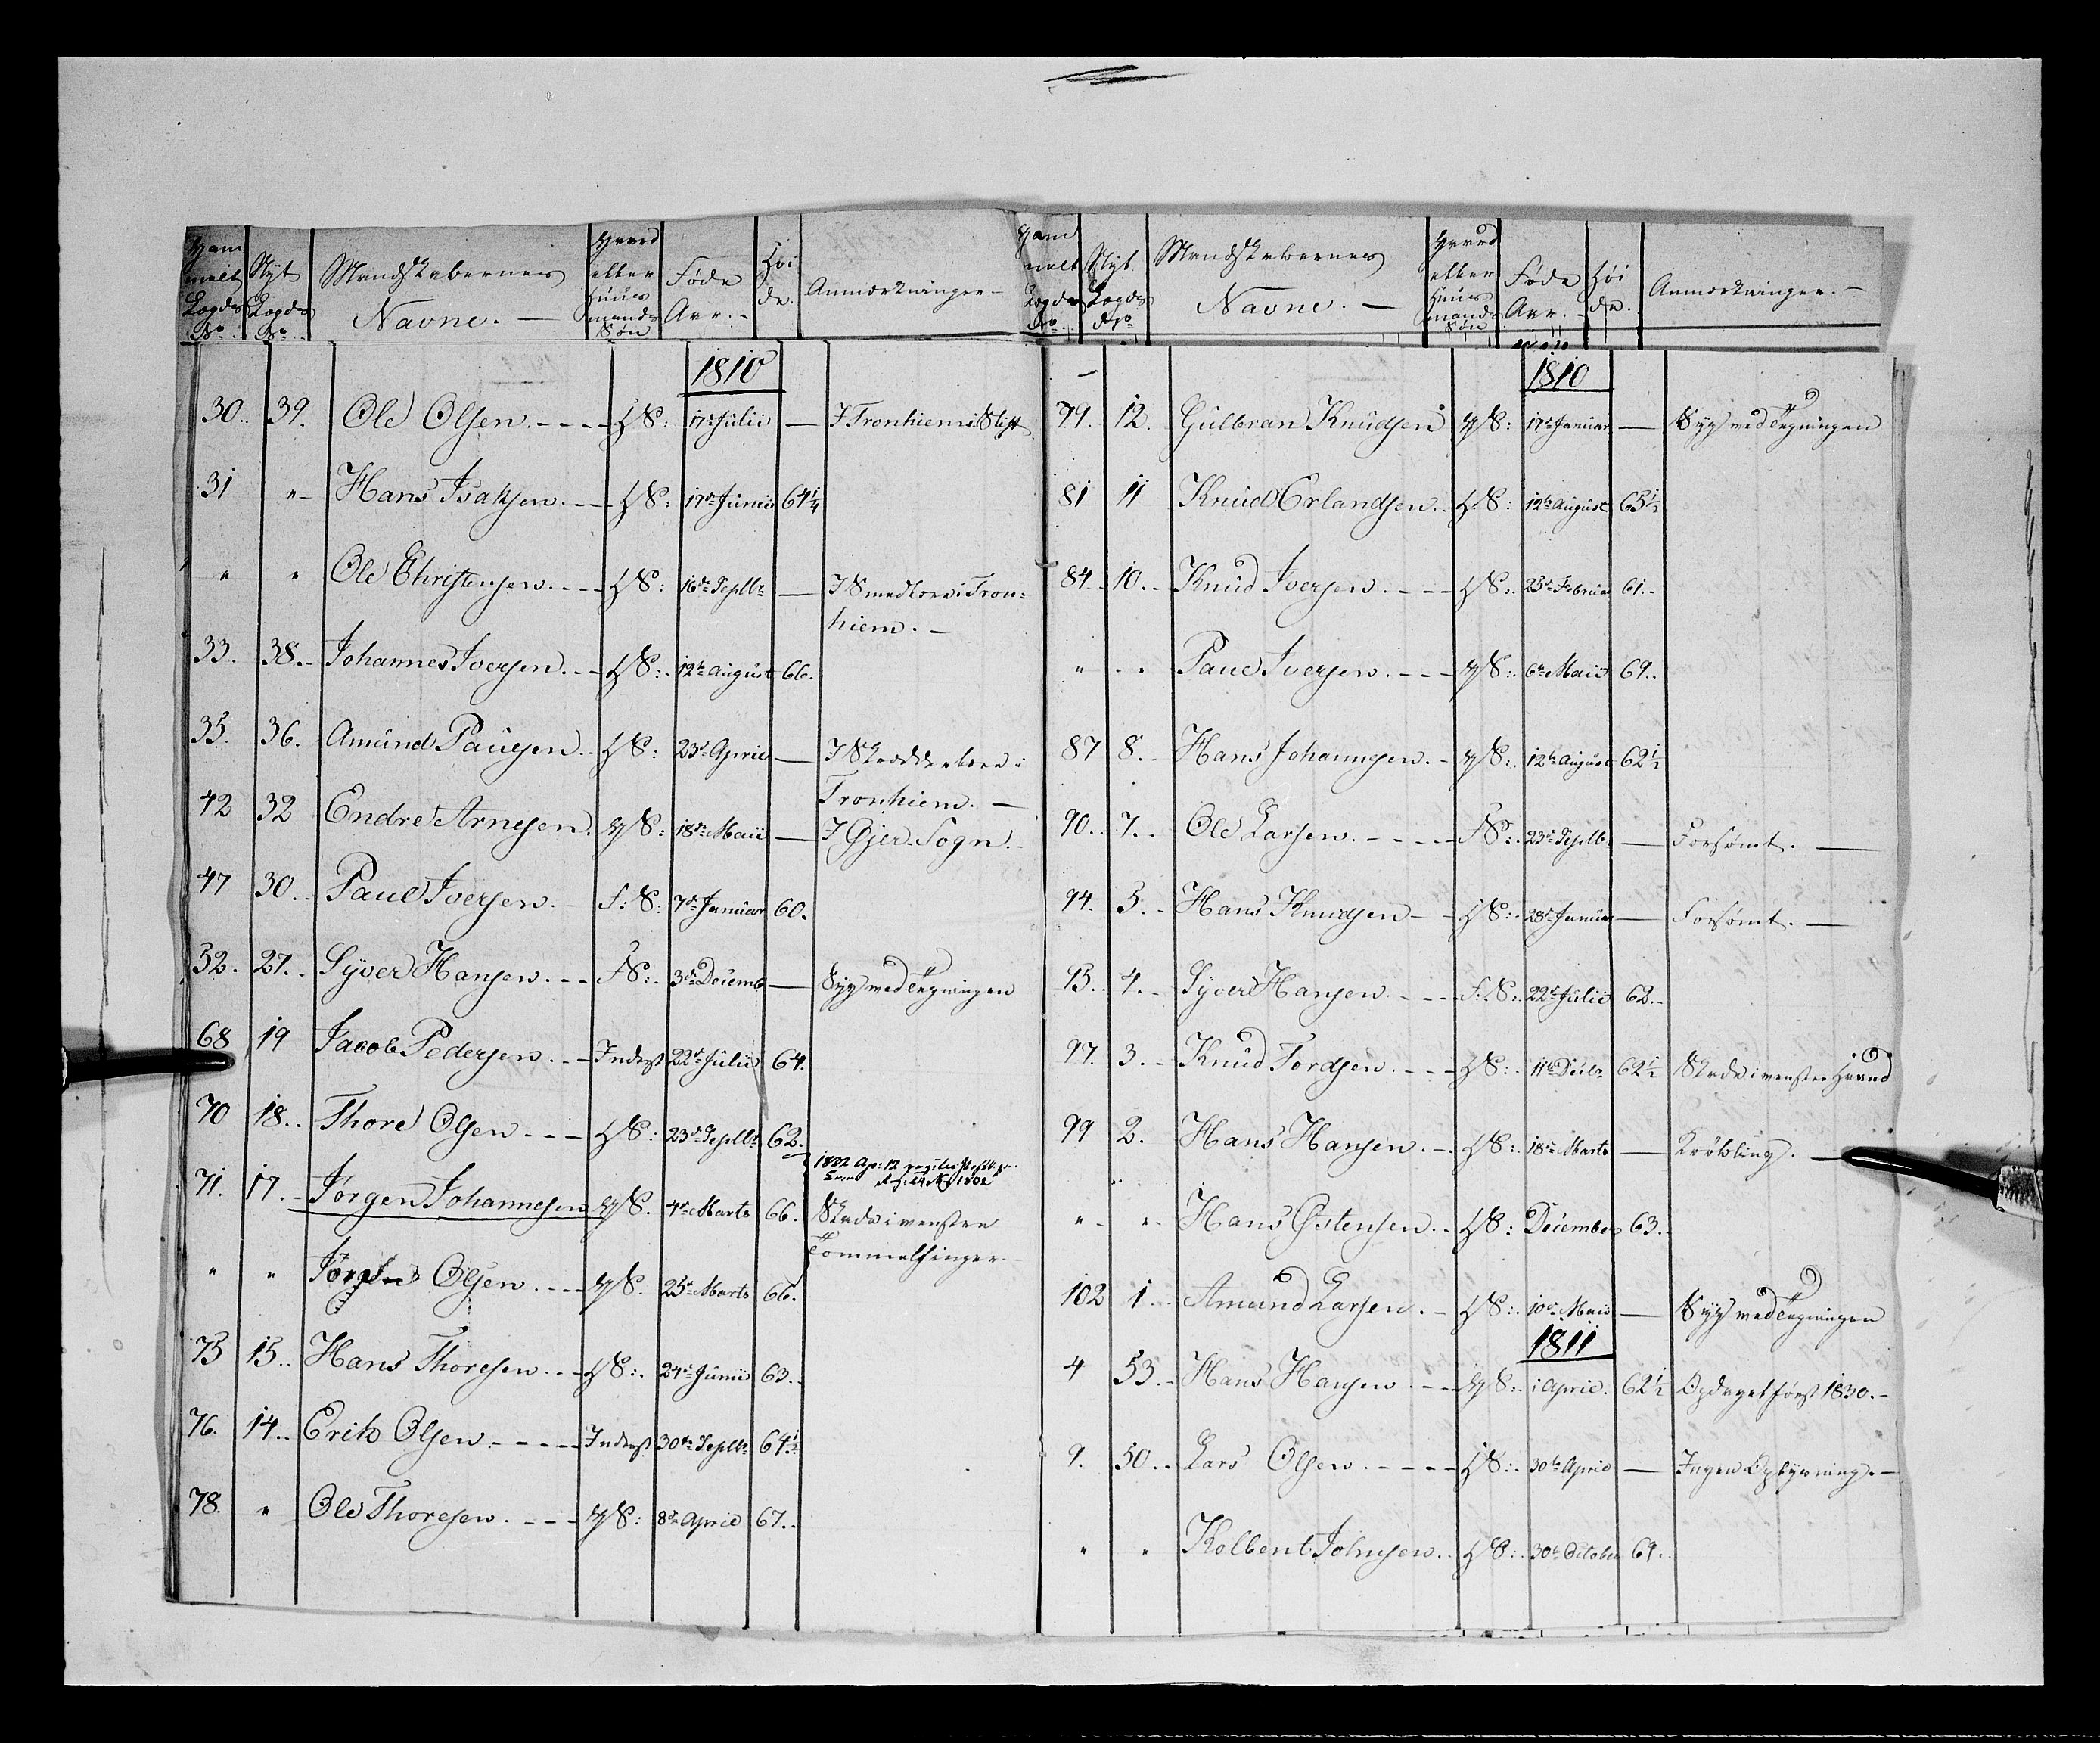 Gam melt Lægds No. Nyt Lægds No. Mandskabernes Navne. Gaard eller Huus mands Søn Føde Aar. Høi de. Anmærkninger
1810
30. 39. Ole Olsen H S: 17de Julii — I Tronhiems Stift
31 " Hans Isaksen H S: 17de Junii 64 1/4
" " Ole Christensen H S: 16de Septbr — I Smedlære i Tron=
hiem.
33. 38. Johannes Iversen H S: 12te August 66.
35. 36. Amund Paulsen H S: 23de April — I Skrædderlære i
Tronhiem.
42 32 Endre Arnesen G S: 18de Maii — I Øjer Sogn.
47 30. Paul Iversen F: S: 7de Januar 60.
52. 27. Syver Hansen F S: 3de Decemb — Syg ved Tegningen
68 19 Jacob Pedersen Inderst 22de Julii 64.
70 18. Thore Olsen H S: 23de Septbr 62.
71. 17. Jørgen Johannesen G S. 4de Marts 66. Skade i venstre
Tommelfinger
" " Jørgen Olsen G S. 25de Marts 66.
75 15. Hans Thoresen H S: 24de Junii 63.
76. 14. Erik Olsen Inderst 30te Septbr 64 1/2
78. " Ole Thoresen G S: 8de April 67.
Gam melt Lægds No. Nyt Lægds No. Mandskabernes Navne. Gaard eller Huus mands Søn Føde Aar. Høi de. Anmærkninger.
1810
79. 12. Gulbran Knudsen G S: 17de Januar — Syg ved Tegningen
81 11 Knud Erlandsen H S: 12te August 65 1/2
84 10. Knud Iversen H S: 23de Februar 61.
" " Paul Iversen G S: 6te Maii 69.
87 8. Hans Johannsen G S: 12te August 62 1/2
90. 7. Ole Larsen F S: 23de Septb — Forsømt.
94. 5. Hans Knudsen H S: 28de Januar — Forsømt.
95. 4. Syver Hansen F: S: 22de Julii 62.
97. 3. Knud Tordsen H S: 11te Decbr 62 1/2 Skade i venstre Haand
99 2. Hans Hansen H S: 18de Marts — Krøbling.
" " Hans Østensen H S: December 63.
102 1. Amund Larsen H S: 10de Maii — Syg ved Tegningen
1811
4 53. Hans Hansen G S: 1 April. 62 1/2 Opdaget først 1830.
9. 50. Lars Olsen H S: 30te April — Ingen Oplysning.
" " Kolbent Johnsen H S: 30te October 69.